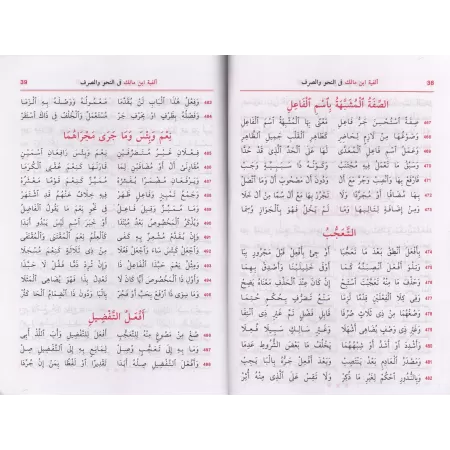 38 ألفية ابن مالك في النحو والصرف
الصِّفَةُ الْمُشَبَّهَةُ بِاسْمِ الْفَاعِلِ
467 صِفَةٌ اسْتُحْسِنَ جَرُّ فَاعِلِ مَعْنًى بِهَا الْمُشْبِهَةُ اسْمَ الْفَاعِلِ
468 وَصَوْغُهَا مِنْ لَازِمٍ لِحَاضِرِ كَطَاهِرِ الْقَلْبِ جَمِيلِ الظَّاهِرِ
469 وَعَمَلُ اسْمِ فَاعِلِ الْمُعَدَّى لَهَا عَلَى الْحَدِّ الَّذِي قَدْ حُدَّا
470 وَسَبْقُ مَا تَعْمَلُ فِيهِ مُجْتَنَبْ وَكَوْنُهُ ذَا سَبَبِيَّةٍ وَجَبْ
471 فَارْفَعْ بِهَا وَانْصِبْ وَجُرَّ مَعَ أَلْ وَدُونَ أَلْ مَصْحُوبَ أَلْ وَمَا اتَّصَلْ
472 بِهَا مُضَافًا أَوْ مُجَرَّدًا وَلَا تَجْرُرْ بِهَا مَعْ أَلْ سُمًا مِنْ أَلْ خَلَا
473 وَمِنْ إِضَافَةٍ لِتَالِيهَا وَمَا لَمْ يَخْلُ فَهْوَ بِالْجَوَازِ وُسِمَا
التَّعَجُّبُ
474 بِأَفْعَلَ انْطِقْ بَعْدَ مَا تَعَجُّبَا أَوْ جِئْ بِأَفْعِلْ قَبْلَ مَجْرُورٍ بِبَا
475 وَتِلْوَ أَفْعَلَ انْصِبَنَّهُ كَمَا أَوْفَى خَلِيلَيْنَا وَأَصْدِقْ بِهِمَا
476 وَحَذْفَ مَا مِنْهُ تَعَجَّبْتَ اسْتَبِحْ إِنْ كَانَ عِنْدَ الْحَذْفِ مَعْنَاهُ يَضِحْ
477 وَفِي كِلَا الْفِعْلَيْنِ قِدْمًا لَزِمَا مَنْعُ تَصَرُّفٍ بِحُكْمٍ حُتِمَا
478 وَصُغْهُمَا مِنْ ذِي ثَلَاثٍ صُرِّفَا قَابِلِ فَضْلٍ تَمَّ غَيْرِ ذِي انْتِفَا
479 وَغَيْرِ ذِي وَصْفٍ يُضَاهِي أَشْهَلَا وَغَيْرِ سَالِكٍ سَبِيلَ فُعِلَا
480 وَأَشْدِدَ أَوْ أَشَدَّ أَوْ شِبْهُهُمَا يَخْلُفُ مَا بَعْضَ الشُّرُوطِ عَدِمَا
481 وَمَصْدَرُ الْعَادِمِ بَعْدُ يَنْتَصِبْ وَبَعْدَ أَفْعِلْ جَرُّهُ بِالْبَا يَجِبْ
482 وَبِالنُّدُورِ احْكُمْ لِغَيْرِ مَا ذُكِرْ وَلَا تَقِسْ عَلَى الَّذِي مِنْهُ أُثِرْ
ألفية ابن مالك في النحو والصرف 39
483 وَفِعْلُ هَذَا الْبَابِ لَنْ يُقَدَّمَا مَعْمُولُهُ وَوَصْلَهُ بِهِ الْزَمَا
484 وَفَصْلُهُ بِظَرْفٍ أَوْ بِحَرْفِ جَرّْ مُسْتَعْمَلٌ وَالْخُلْفُ فِي ذَاكَ اسْتَقَرّْ
نِعْمَ وَبِئْسَ وَمَا جَرَى مَجْرَاهُمَا
485 فِعْلَانِ غَيْرُ مُتَصَرِّفَيْنِ نِعْمَ وَبِئْسَ رَافِعَانِ اسْمَيْنِ
486 مُقَارِنَيْ أَلْ أَوْ مُضَافَيْنِ لِمَا قَارَنَهَا كَنِعْمَ عُقْبَى الْكُرَمَا
487 وَيَرْفَعَانِ مُضْمَرًا يُفَسِّرُهْ مُمَيِّزٌ كَنِعْمَ قَوْمًا مَعْشَرُهْ
488 وَجَمْعُ تَمْيِيزٍ وَفَاعِلٍ ظَهَرْ فِيهِ خِلَافٌ عَنْهُمُ قَدِ اشْتَهَرْ
489 وَمَا مُمَيِّزٌ وَقِيلَ فَاعِلُ فِي نَحْوِ نِعْمَ مَا يَقُولُ الْفَاضِلُ
490 وَيُذْكَرُ الْمَخْصُوصُ بَعْدُ مُبْتَدَا أَوْ خَبَرَ اسْمٍ لَيْسَ يَبْدُو أَبَدَا
491 وَإِنْ يُقَدَّمْ مُشْعِرٌ بِهِ كَفَى كَالْعِلْمُ نِعْمَ الْمُقْتَنَى وَالْمُقْتَفَى
492 وَاجْعَلْ كَبِئْسَ سَاءَ وَاجْعَلْ فَعُلَا مِنْ ذِي ثَلَاثَةٍ كَنِعْمَ مُسْجَلَا
493 وَمِثْلُ نِعْمَ حَبَّذَا الْفَاعِلُ ذَا وَإِنْ تُرِدْ ذَمًّا فَقُلْ لَا حَبَّذَا
494 وَأَوْلِ ذَا الْمَخْصُوصَ أَيًّا كَانَ لَا تَعْدِلْ بِذَا فَهُوَ يُضَاهِي الْمَثَلَا
495 وَمَا سِوَى ذَا ارْفَعْ بِحَبَّ أَوْ فَجُرّْ بِالْبَا وَدُونَ ذَا انْضِمَامُ الْحَا كَثُرْ
أَفْعَلُ التَّفْضِيلِ
496 صُغْ مِنْ مَصُوغٍ مِنْهُ لِلتَّعَجُّبِ أَفْعَلَ لِلتَّفْضِيلِ وَأْبَ اللَّذْ أُبِي
497 وَمَا بِهِ إِلَى تَعَجُّبٍ وُصِلْ لِمَانِعٍ بِهِ إِلَى التَّفْضِيلِ صِلْ
498 وَأَفْعَلَ التَّفْضِيلِ صِلْهُ أَبَدَا تَقْدِيرًا أَوْ لَفْظًا بِمِنْ إِنْ جُرِّدَا